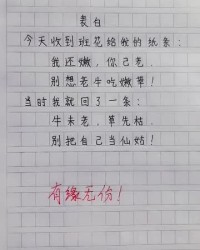 表白
今天收到班花给我的纸条:
我还嫩,你己老,
别想老牛吃嫩草!
当时我就回了一条:
牛未老,草先枯,
别把自己当仙姑!
有缘无份!